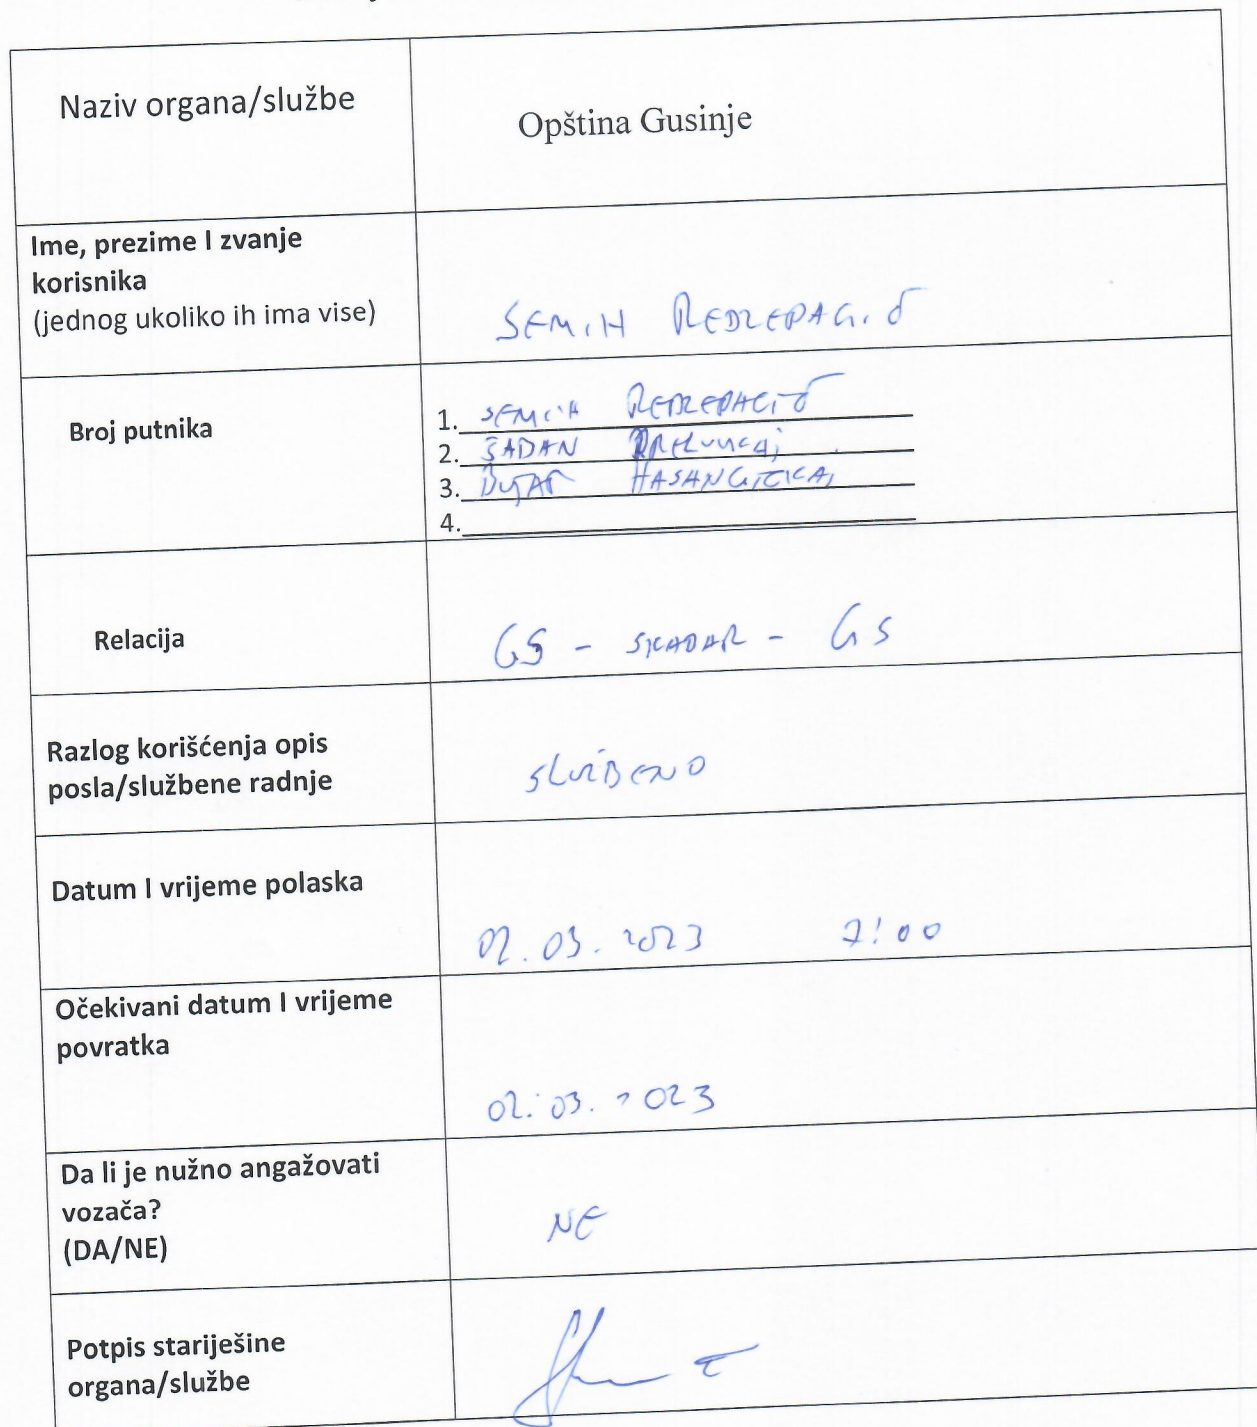 Naziv organa/službe
Opština Gusinje
Ime, prezime I zvanje
korisnika
(jednog ukoliko ih ima vise)
SEMIH REDŽEPAGIĆ
Broj putnika
1. SEMIH REDŽEPAGIĆ
2. ŠADAN
3. HASANGJEKAJ
4.
Relacija
GS - SKADAR - GS
Razlog korišćenja opis
posla/službene radnje
SLUŽBENO
Datum I vrijeme polaska
02.03.2023 7:00
Očekivani datum I vrijeme
povratka
02.03.2023
Da li je nužno angažovati
vozača?
(DA/NE)
NE
Potpis starješine
organa/službe